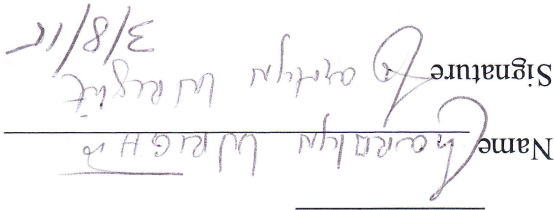 Name CAROLYN WRIGHT
Signature Carolyn Wright